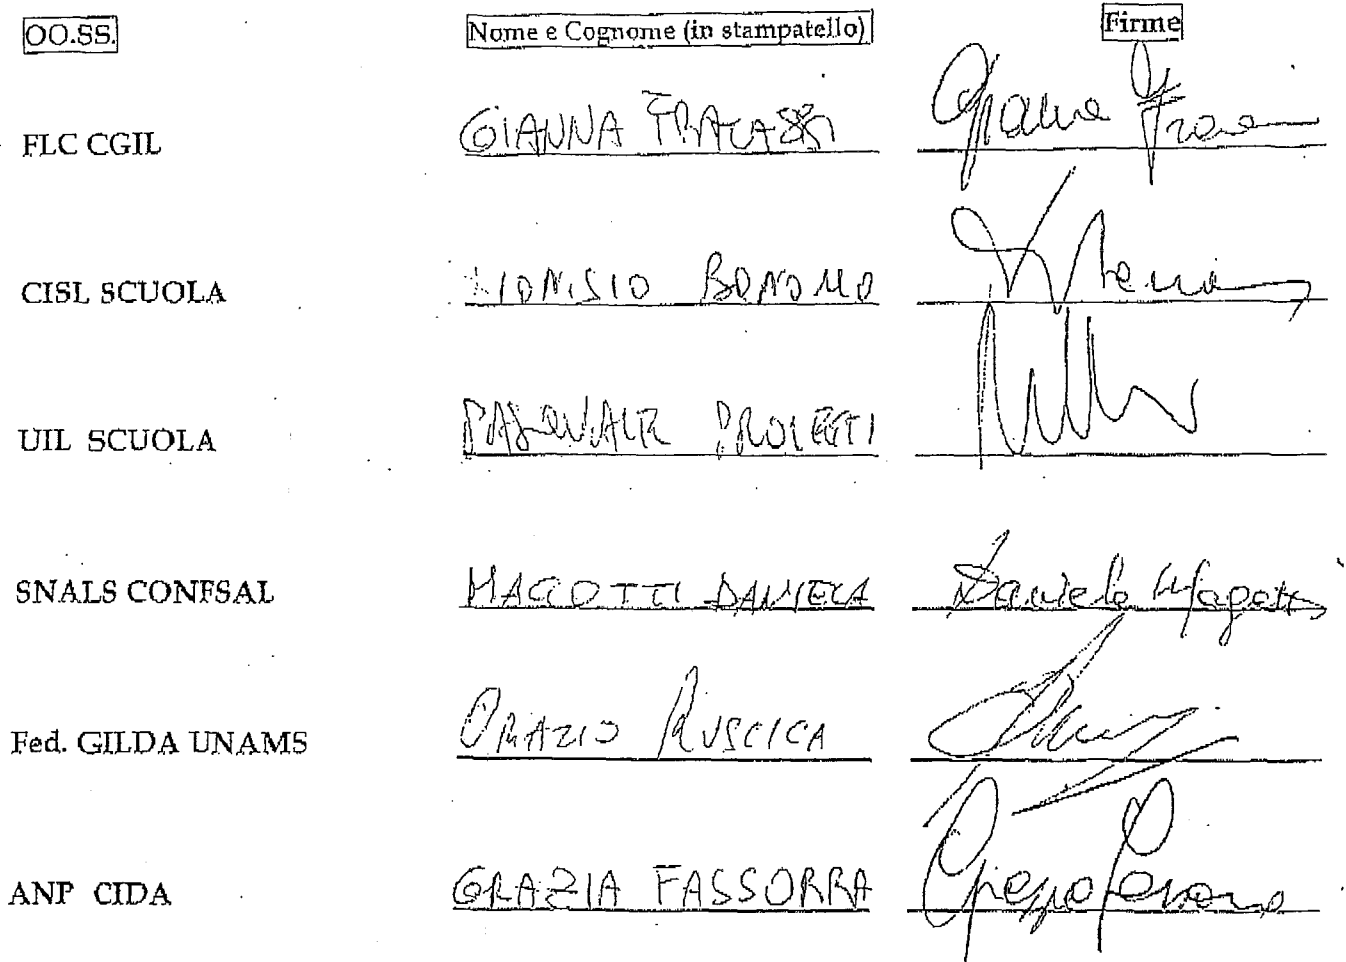 OO.SS. Nome e Cognome (in stampatello) Firme
FLC CGIL GIANNA FRACASSI
CISL SCUOLA DIONISIO BONOMO
UIL SCUOLA PASQUALE PROIETTI
SNALS CONFSAL MAGOTTI DANIELA Daniela Magotti
Fed. GILDA UNAMS ORAZIO RUSCICA
ANP CIDA GRAZIA FASSORRA